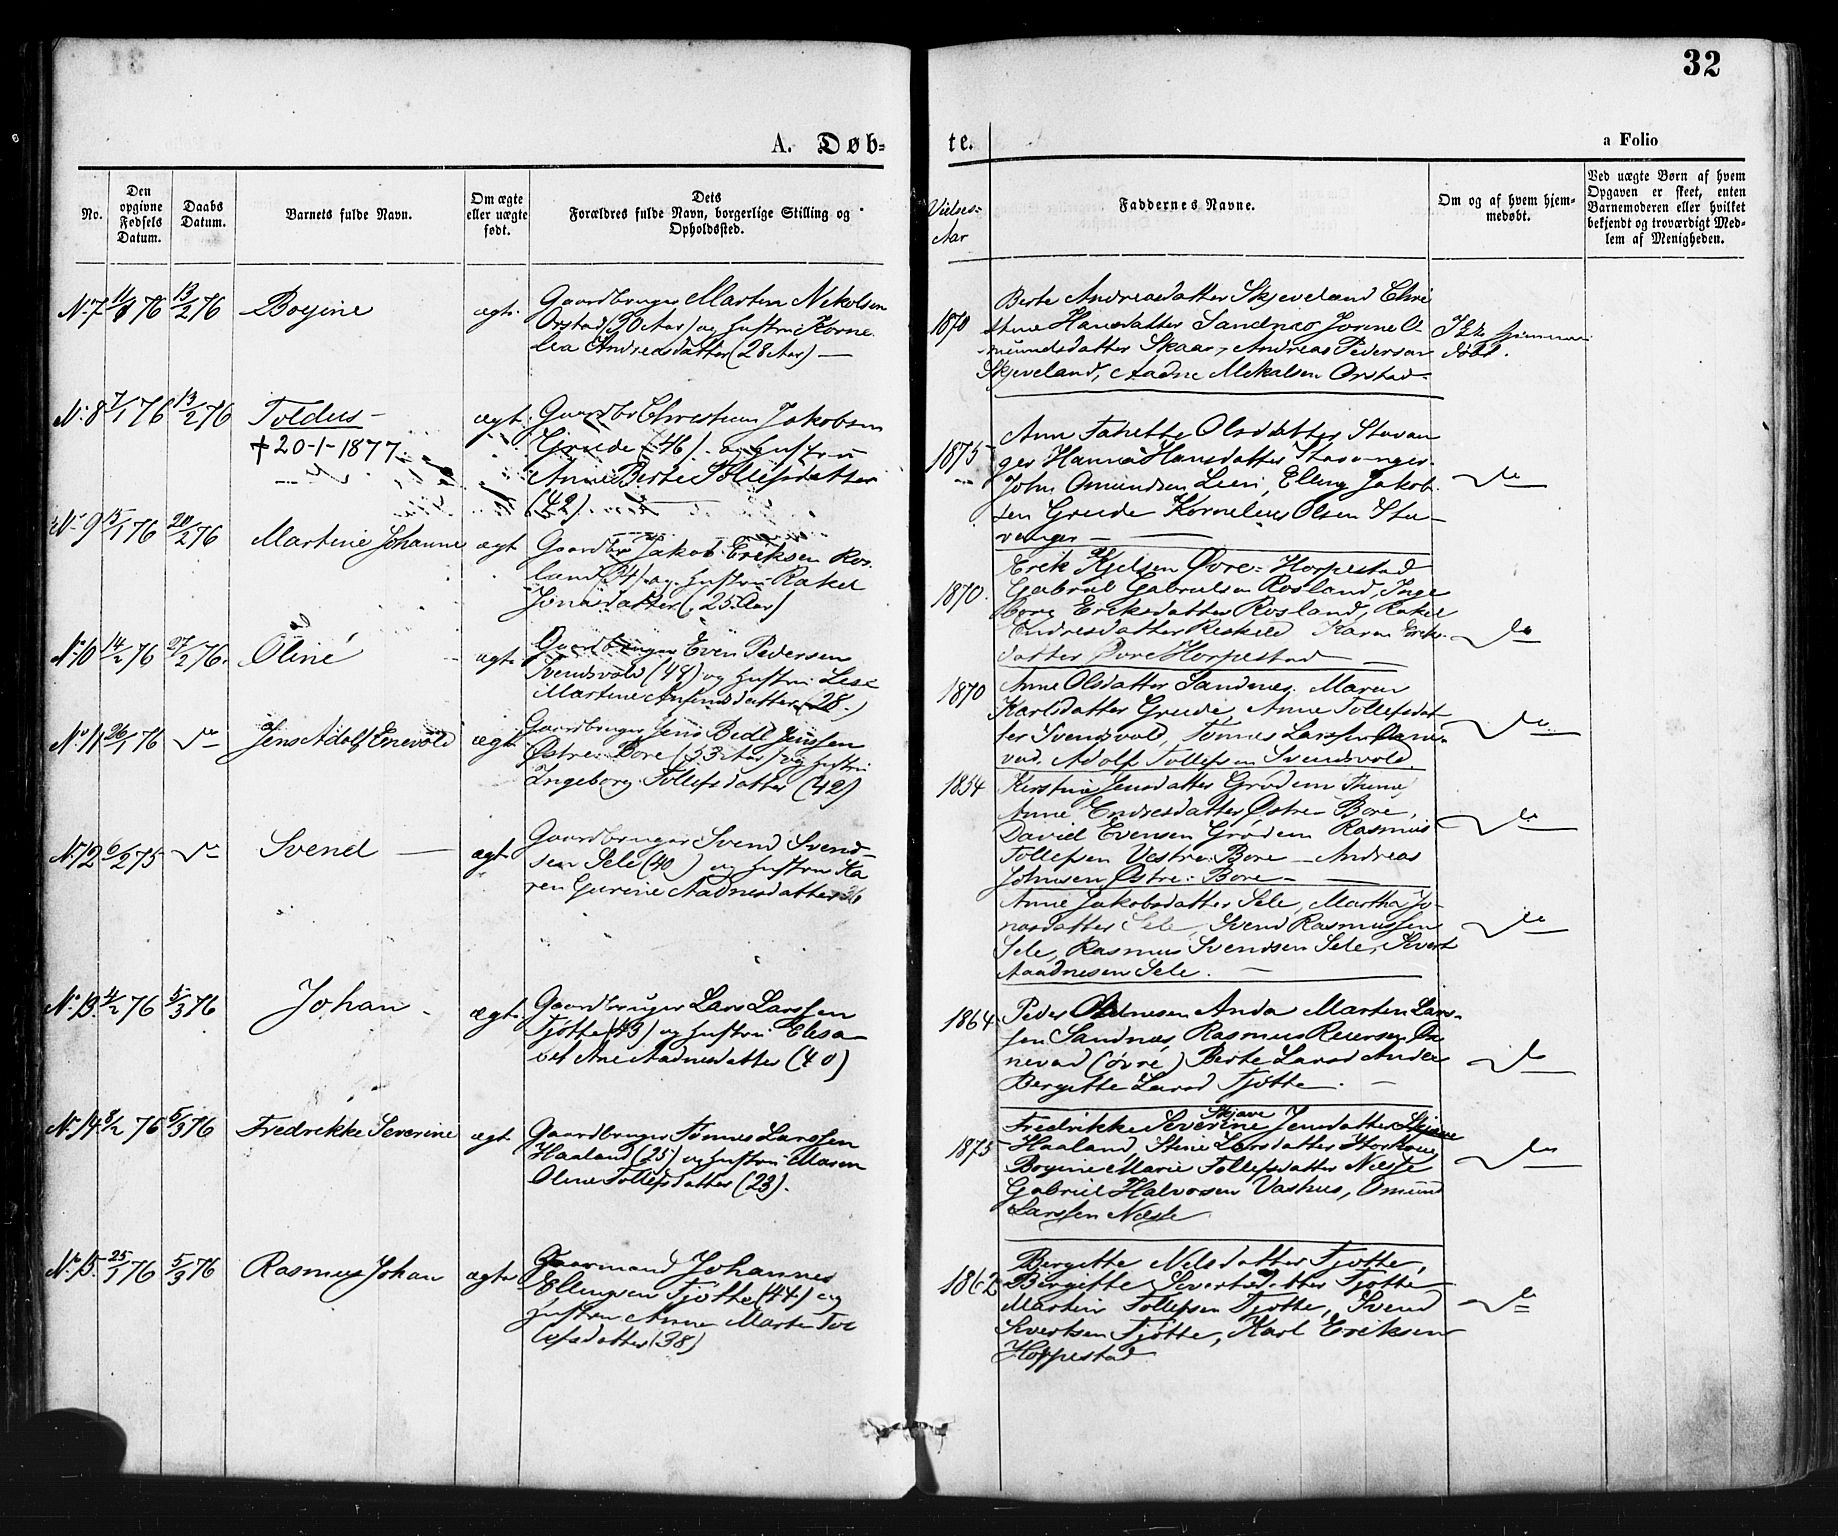 32
A. Døb-
te.
a Folio
No.
Den opgivne Fødsels Datum.
Daabs Datum.
Barnets fulde Navn.
Om ægte eller uægte født.
Dets Forældres fulde Navn, borgerlige Stilling og Opholdssted.
Vielses-Aar
Faddernes Navne.
Om og af hvem hjemmedøbt.
Ved uægte Børn af hvem Opgaven er skeet, enten Barnemoderen eller hvilket bekjendt og troværdigt Medlem af Menigheden.
No 7 11/1 76 13/2 76 Bogine ægte Gaardbruger Marten Mekolsen
Orstad (30 Aar) og Hustru Korne-
lia Andreasdatter (28 Aar) —
1870 Berte Andreasdatter Skjeveland Chri-
stine Hansdatter Sandnes Jorine O-
mundsdatter Skaar, Andreas Pedersen
Skjeveland, Aadne Mekalsen Orstad.
Ikke hjemme-
døbt.
No 8 7/1 76 13/2 76 Toldus — ægte Gaardbr Christian Jakobsen
✝ 20-1-1877
Grude (46) og Hustru
Anne Berte Tollefsdatter
(42)
1875 Ann Olsdatter Stavan
ger Hanna Hansdatter Stavanger.
John Omundsen Leen, Elling Jakob
sen Grude Kornelius Olsen Sta-
vanger —
do
No 9 15/1 76 20/2 76 Martine Johanne ægte Gaardbr Jakob Eriksen Ros-
land (34) og Hustru Rakel
Jonasdatter (25 Aar)
1870. Erik Kjelsen Øvre-Horpestad
Gabriel Gabrielsen Rosland, Inge
borg Eriksdatter Rosland, Rakel
Endresdatter Reskeld Karen Eriks-
datter Øvre Horpestad —
do
No 10 14/2 76 27/2 76. Oline ægte Gaardbruger Even Pedersen
Svendsvold (44) og Hustru Lise
Martine datter (28.)
1870 Anne Olsdatter Sandnes. Maren
Karlsdatter Grude, Anne Tollefsdat-
ter Svendsvold, Tønnes Larssen Anne-
vad, Adolf Tollefsen Svendsvold.
do
No 11 26/1 76 do Jens Adolf Enevold ægte Gaardbruger Jens Bedt Jenssen
Østre-Bore (53 Aar) og Hustru
Ingeborg Tollefsdatter (42)
1854 Kirstine Jensdatter Grødem
Anne Endresdatter Østre Bore,
David Evensen Grødem Rasmus
Tollefsen Vestre Bore — Andreas
Johnsen Østre-Bore —
do
No 12 6/2 75 do Svend — ægte Gaardbruger Svend Svend-
sen Sele (40) og Hustru Ka
ren Gurine Aadnesdatter 36
Anne Jakobsdatter Sele, Martha Jo-
nasdatter Sele, Svend Rasmussen
Sele, Rasmus Svendsen Sele, Sivert
Aadnesen Sele. —
do
No 13. 4/2 76 5/3 76 Johan — ægte Gaardbruger Lars Larssen
Tjøtte (43) og Hustru Elisa-
bet Ane Aadnesdatter (40)
1864. Peder Aadnesen Anda Marten Lars-
sen Sandnes, Rasmus Reiersen An-
nevad (øvre) Berte Larsd Anda
Bergitte Larsd Tjøtte. —
do
No 14 8/2 76 5/3 76 Fredrikke Severine ægte Gaardbruger Tønnes Larssen
Haaland (25) og Hustru Maren
Oline Tollefsdatter (23).
1875 Fredrikke Severine Jensdatter Skjæve
Skjæve
Haaland, Stine Larsdatter
Bogine Marie Tollefsdatter Næste
Gabriel Halvorsen Vashus, Omund
Larssen Næste
do
No 15. 25/1 76 5/3 76 Rasmus Johan ægte Gaarmand Johannes
Ellingsen Tjøtte (44) og
Hustru Anne Marte Tol
lefsdatter (38)
1862 Bergitte Nilsdatter Tjøtte,
Bergitte Sivertsdatter Tjøtte
Martin Tollefsen Tjøtte, Svend
Sivertsen Tjøtte, Karl Eriksen
Horpestad
do